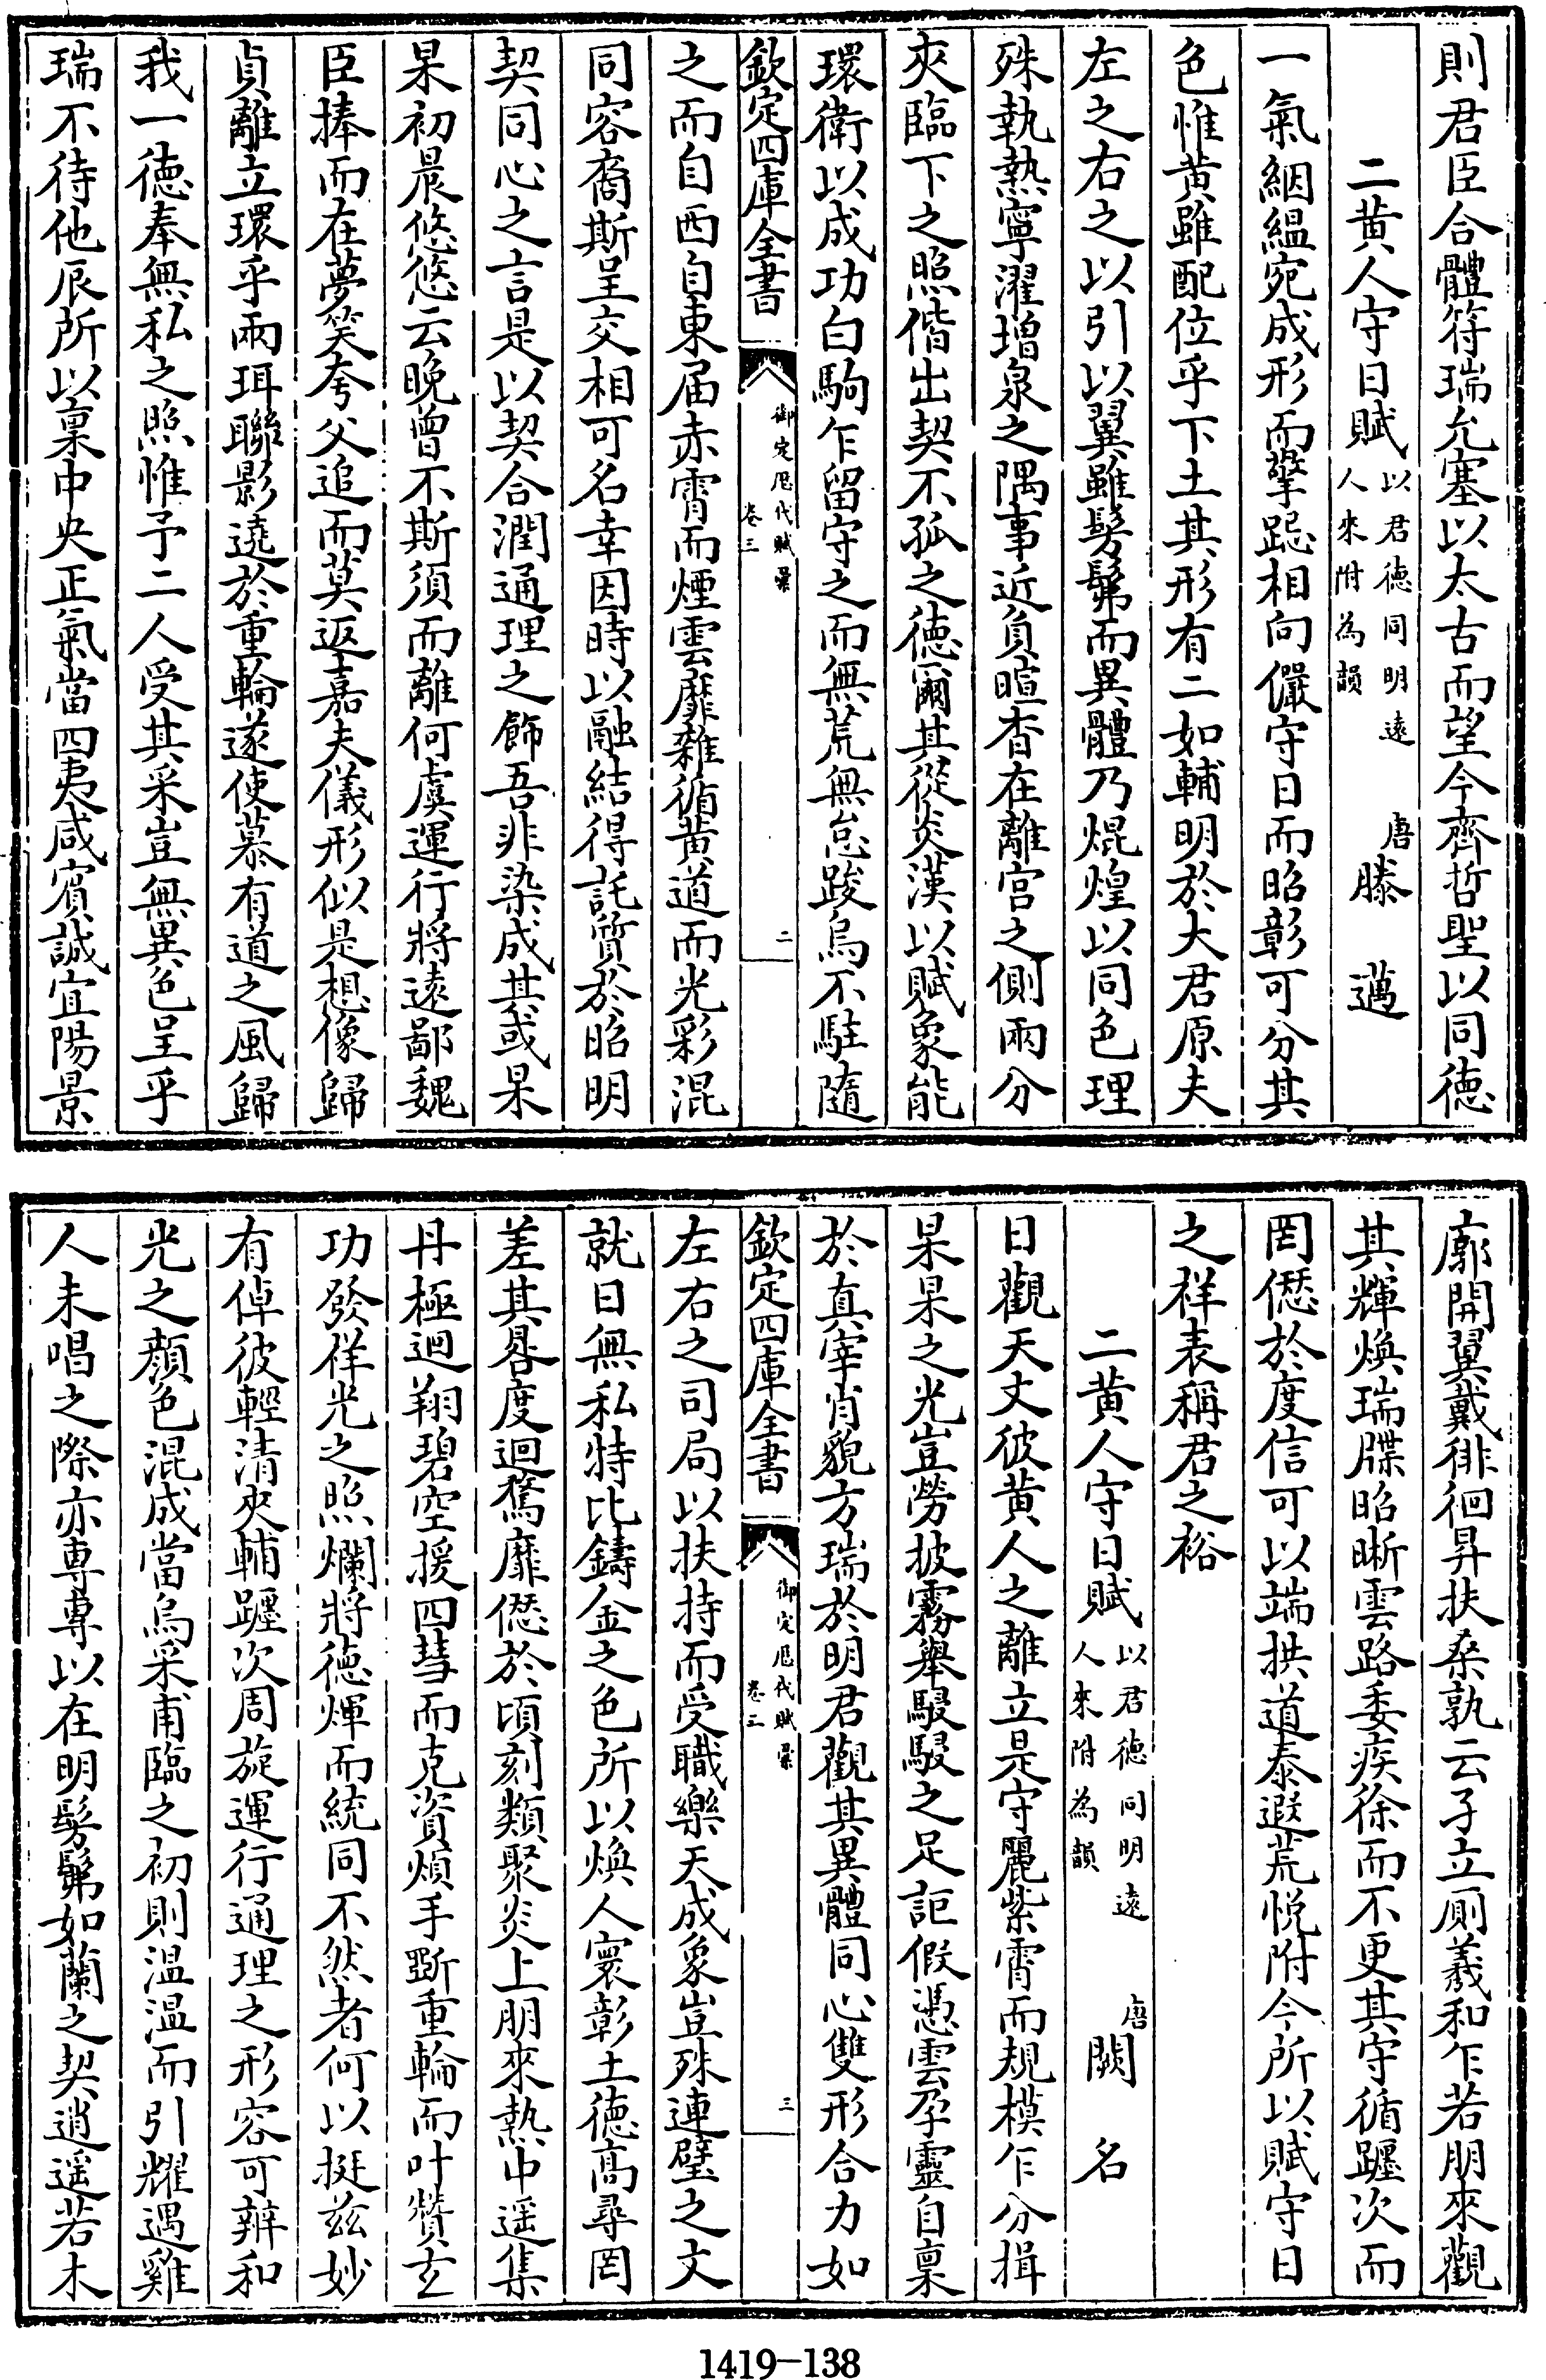 則君臣合體符瑞允塞以太古而望今齊哲聖以同徳
二黄人守日賦以君徳同明遠人來附為韻 唐滕邁
一氣絪緼宛成形而擎跽相向儼守日而昭彰可分其
色惟黄雖配位乎下土其形有二如輔明於大君原夫
左之右之以引以翼雖髣髴而異體乃焜煌以同色理
殊執熱寧濯增泉之隅事近負暄杳在離宫之側兩分
夾臨下之照偕出契不孤之徳爾其從炎漢以賦象能
環衛以成功白駒乍留守之而無荒無怠踆烏不駐隨
欽定四庫全書 御定厯代賦彚 卷三 二
之而自西自東届赤霄而煙雲靡雜循黄道而光彩混
同容裔斯呈交相可名幸因時以融結得託質於昭明
契同心之言是以契合潤通理之飾吾非染成其或杲
杲初晨悠悠云晚曾不斯須而離何虞運行將遠鄙魏
臣捧而在夢笑夸父追而莫返嘉夫儀形似是想像歸
貞離立環乎兩珥聯影遶於重輪遂使慕有道之風歸
我一徳奉無私之照惟予二人受其采豈無異色呈乎
瑞不待他辰所以稟中央正氣當四夷咸賓誠宜陽景
廓開翼戴徘徊昇扶桑孰云孑立厠羲和乍若朋來觀
其輝煥瑞牒昭晰雲路委疾徐而不更其守循躔次而
罔僁於度信可以端拱道泰遐荒悦附今所以賦守日
之祥表稱君之裕
二黄人守日賦以君徳同明遠人來附為韻 唐闕名
日觀天丈彼黄人之離立是守麗紫霄而規模乍分揖
杲杲之光豈勞披霧舉駸駸之足詎假憑雲孕靈自稟
於真宰肖貌方瑞於明君觀其異體同心雙形合力如
欽定四庫全書 御定厯代賦彚 卷三 三
左右之司局以扶持而受職樂天成象豈殊連璧之文
就日無私特比鑄金之色所以煥人寰彰土徳髙尋罔
差其晷度迴騖靡僁於頃刻類聚炎上朋來熱中遥集
丹極迴翔碧空援四彗而克資煩手斲重輪而叶贊玄
功發祥光之照爛將徳煇而統同不然者何以挺兹妙
有倬彼輕清夾輔躔次周旋運行通理之形容可辨和
光之顔色混成當烏采甫臨之初則温温而引耀遇雞
人未唱之際亦専専以在明髣髴如蘭之契逍遥若木
1419-138